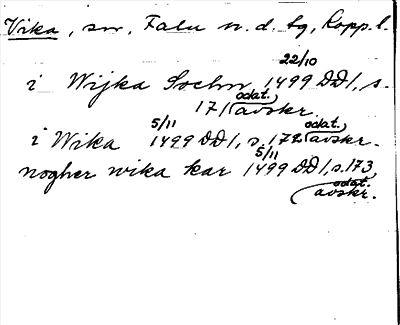 Vika, sn, Falu n. d. tg, Kopp. l.
22/10
i Wijka Sochn 1499 DD 1, s.
171 (odat. avskr.
5/11
i Wika 1499 DD 1, s. 172 (odat.) avskr.
5/11
nogher wika kar 1499 DD 1, s. 173,
(odat. avskr.